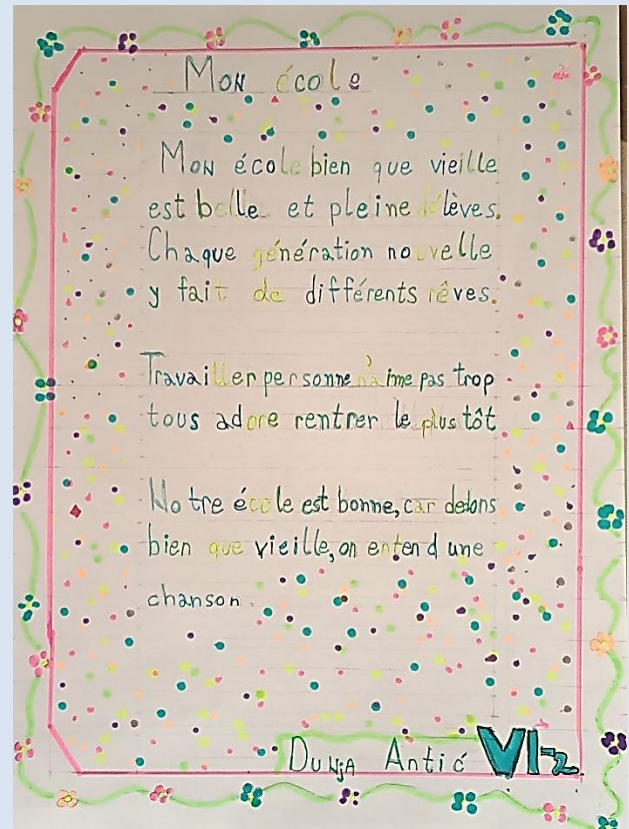 Mon école
Mon école bien que vieille
est belle et pleine élèves.
Chaque génération nouvelle
y fait de différents rêves.
Travailler personne n'aime pas trop
tous adore rentrer le plus tôt
Notre école est bonne, car
bien que vieille, on entend une
chanson.
Dunja Antić VI-2